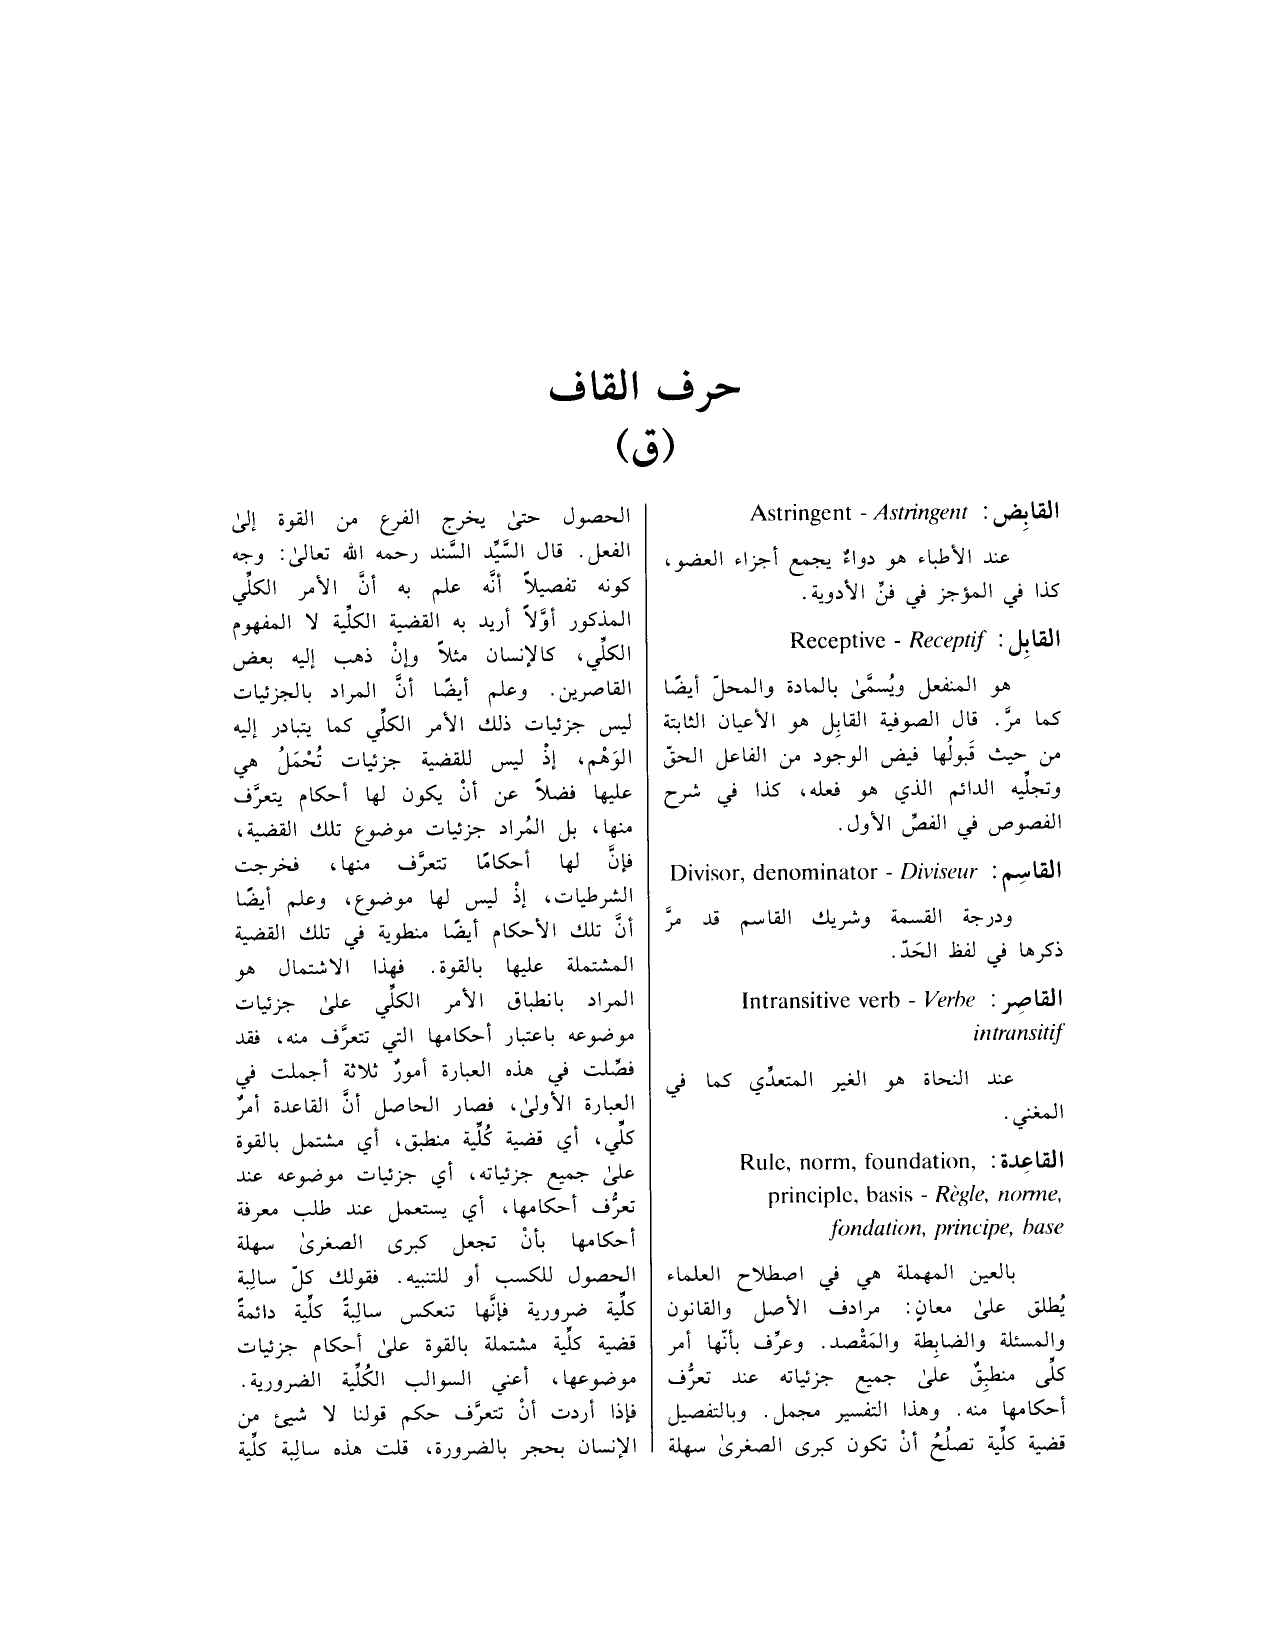 حرف القاف
(ق)
القابِض: Astringent - Astringent
عند الأطباء هو دواءٌ يجمع أجزاء العضو،
كذا في المؤجز في فنّ الأدوية.
القابِل: Receptive - Receptif
هو المنفعل ويُسمَّىٰ بالمادة والمحلّ أيضًا
كما مرَّ. قال الصوفية القابِل هو الأعيان الثابتة
من حيث قَبولُها فيض الوجود من الفاعل الحقّ
وتجلِّيه الدائم الذي هو فعله، كذا في شرح
الفصوص في الفصِّ الأول.
القاسِم: Divisor, denominator - Diviseur
ودرجة القسمة وشريك القاسم قد مرَّ
ذكرها في لفظ الحَدّ.
القاصِر: Intransitive verb - Verbe
intransitif
عند النحاة هو الغير المتعدِّي كما في
المغني.
القاعِدة: Rule, norm, foundation,
principle, basis - Règle, norme,
fondation, principe, base
بالعين المهملة هي في اصطلاح العلماء
يُطلق علىٰ معانٍ: مرادف الأصل والقانون
والمسئلة والضابِطة والمَقْصد. وعرِّف بأنّها أمر
كلِّي منطبِقٌ علىٰ جميع جزئياته عند تعرُّف
أحكامها منه. وهذا التفسير مجمل. وبالتفصيل
قضية كلِّية تصلُحُ أنْ تكون كبرى الصغرىٰ سهلة
الحصول حتىٰ يخرج الفرع من القوة إلىٰ
الفعل. قال السَّيِّد السَّند رحمه الله تعالىٰ: وجه
كونه تفصيلاً أنَّه علم به أنَّ الأمر الكلِّي
المذكور أوَّلاً أريد به القضية الكلِّية لا المفهوم
الكلِّي، كالإنسان مثلاً وإنْ ذهب إليه بعض
القاصرين. وعلم أيضًا أنَّ المراد بالجزئيات
ليس جزئيات ذلك الأمر الكلِّي كما يتبادر إليه
الوَهْم، إذْ ليس للقضية جزئيات تُحْمَلُ هي
عليها فضلاً عن أنْ يكون لها أحكام يتعرَّف
منها، بل المُراد جزئيات موضوع تلك القضية،
فإنَّ لها أحكامًا تتعرَّف منها، فخرجت
الشرطيات، إذْ ليس لها موضوع، وعلم أيضًا
أنَّ تلك الأحكام أيضًا منطوية في تلك القضية
المشتملة عليها بالقوة. فهذا الاشتمال هو
المراد بانطباق الأمر الكلِّي علىٰ جزئيات
موضوعه باعتبار أحكامها التي تتعرَّف منه، فقد
فصِّلت في هذه العبارة أمورٌ ثلاثة أجملت في
العبارة الأولىٰ، فصار الحاصل أنَّ القاعدة أمرٌ
كلِّي، أي قضية كُلِّية منطبق، أي مشتمل بالقوة
علىٰ جميع جزئياته، أي جزئيات موضوعه عند
تعرُّف أحكامها، أي يستعمل عند طلب معرفة
أحكامها بأنْ تجعل كبرى الصغرىٰ سهلة
الحصول للكسب أو للتنبيه. فقولك كلّ سالِبة
كلِّية ضرورية فإنَّها تنعكس سالِبةً كلِّية دائمةً
قضية كلِّية مشتملة بالقوة علىٰ أحكام جزئيات
موضوعها، أعني السوالب الكُلِّية الضرورية.
فإذا أردت أنْ تتعرَّف حكم قولنا لا شيئ من
الإنسان بحجر بالضرورة، قلت هذه سالِبة كلِّية